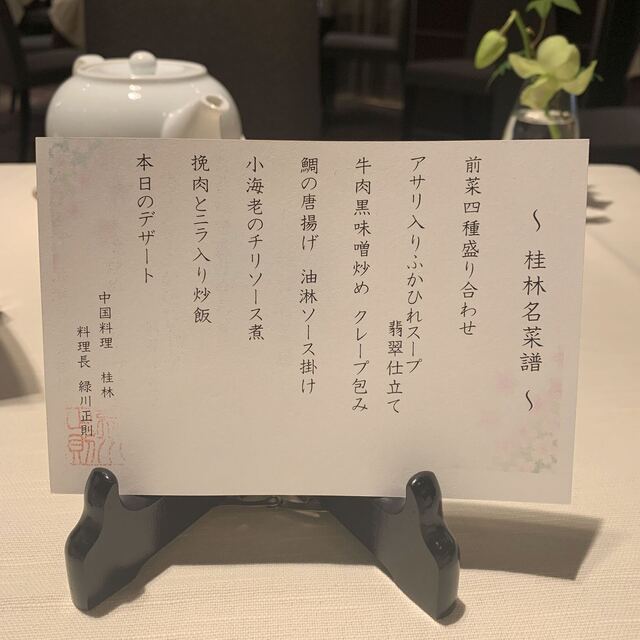 ～ 桂林名菜譜 ～
前菜四種盛り合わせ
アサリ入りふかひれスープ
翡翠仕立て
牛肉黒味噌炒め クレープ包み
鯛の唐揚げ 油淋ソース掛け
小海老のチリソース煮
挽肉とニラ入り炒飯
本日のデザート
中国料理 桂林
料理長 緑川正則